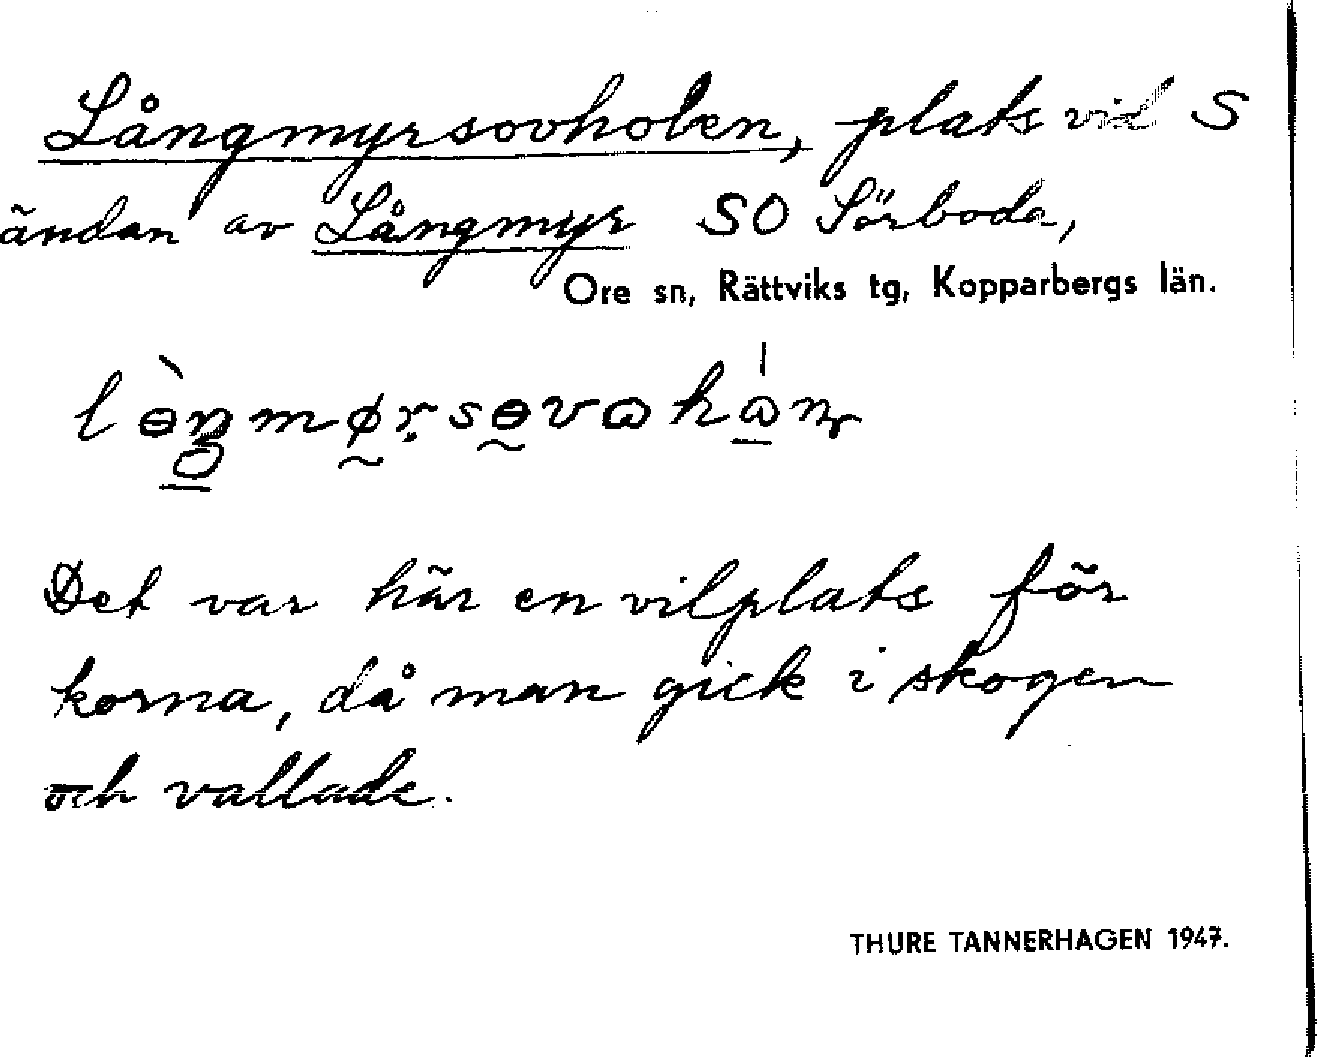 Långmyrsovholen, plats vid S
ändan av Långmyr SO Sörboda,
Ore sn, Rättviks tg, Kopparbergs län.
Det var här en vilplats för
korna, då man gick i skogen
och vallade.
THURE TANNERHAGEN 1947.